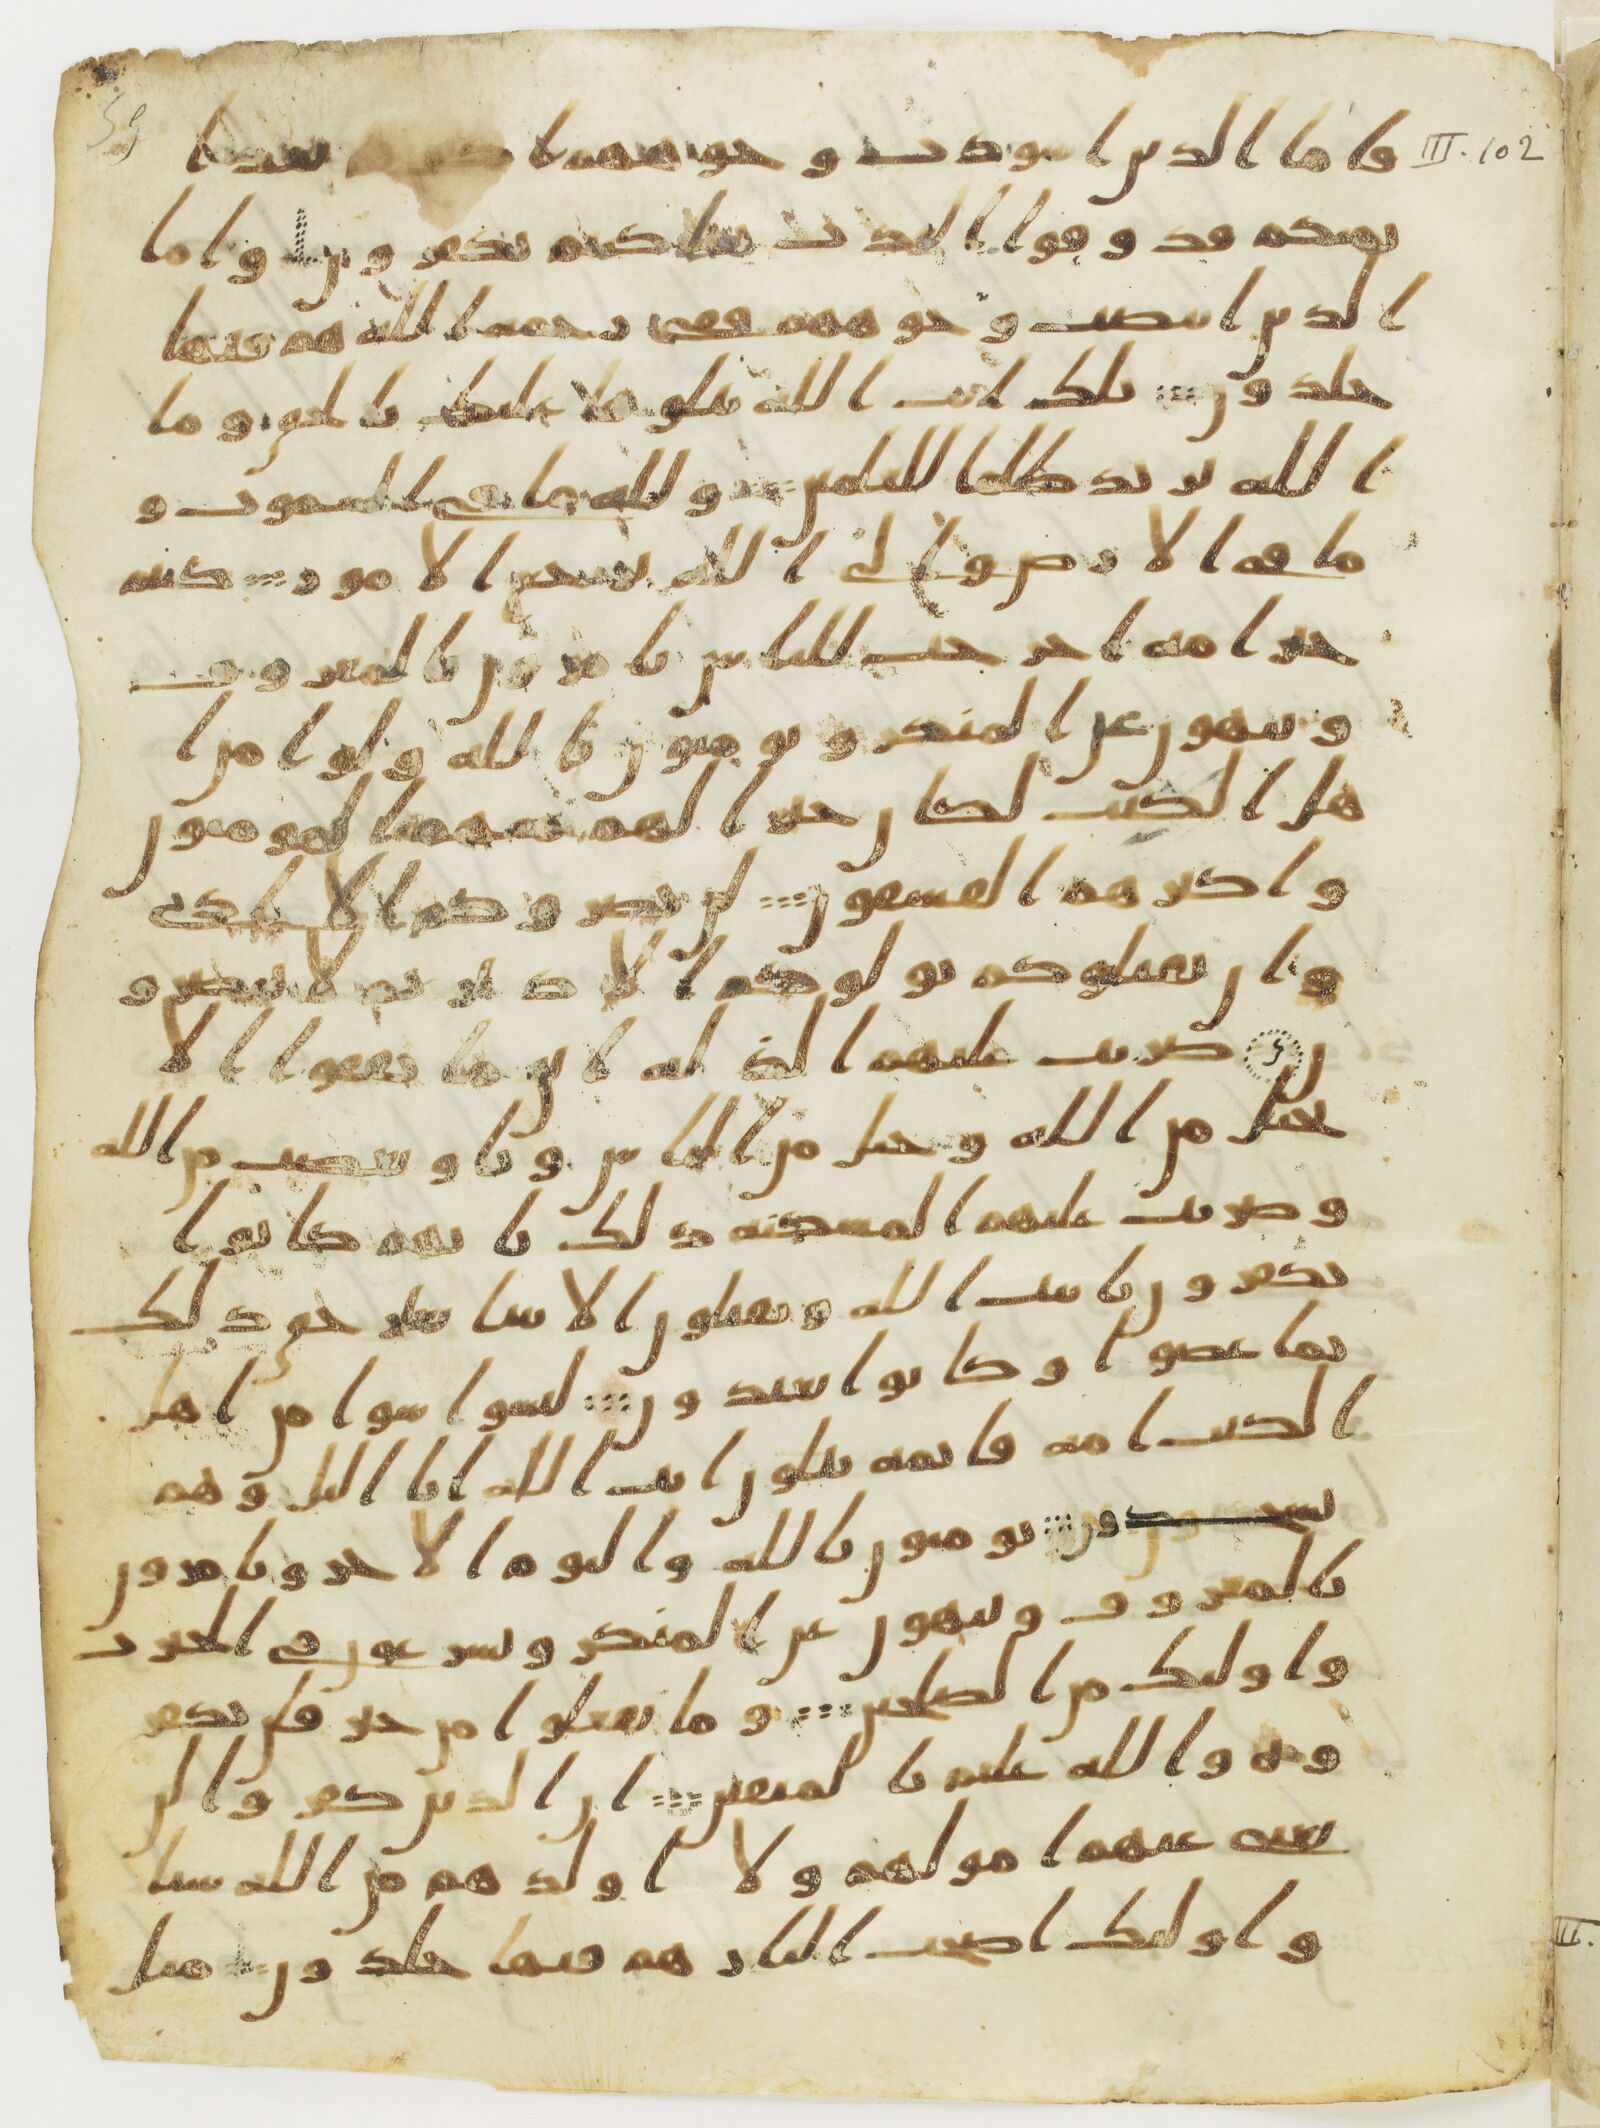 59
فاما الذين اسودت وجوههم اكفرتم بعدا III. 102
يمنكم فذوقوا العذب بما كنتم تكفرون واما
الذين ابيضت وجوههم ففي رحمة الله هم فيها
خلدون تلك ايت الله نتلوها عليك بالحق وما
الله يريد ظلما للعلمين ولله ما في السموت و
ما في الارض والى الله ترجع الامور كنتم
خير امة اخرجت للناس تامرون بالمعروف
وتنهون عن المنكر وتومنون بالله ولو امن ا
هل الكتب لكان خيرا لهم منهم المومنون
واكثرهم الفسقون لن يضروكم الا اذى
وان يقتلوكم يولوكم الادبر ثم لا ينصرو
ن ضربت عليهم الذلة اين ما ثقفوا الا
بحبل من الله وحبل من الناس وباو بغضب من الله
وضربت عليهم المسكنة ذلك بانهم كانوا
يكفرون بايت الله ويقتلون الانبيا بغير حق ذلك
بما عصوا وكانوا يعتدون ليسوا سوا من اهل
الكتب امة قايمة يتلون ايت الله انا اليل وهم
يسجدون يومنون بالله واليوم الاخر ويامرون
بالمعروف وينهون عن المنكر ويسرعون في الخيرت
واوليك من الصلحين وما تفعلوا من خير فلن تكفر
وه والله عليم بالمتقين ان الذين كفروا لن
تغني عنهم امولهم ولا اولدهم من الله شيا
واوليك اصحب النار هم فيها خلدون مثل
III.